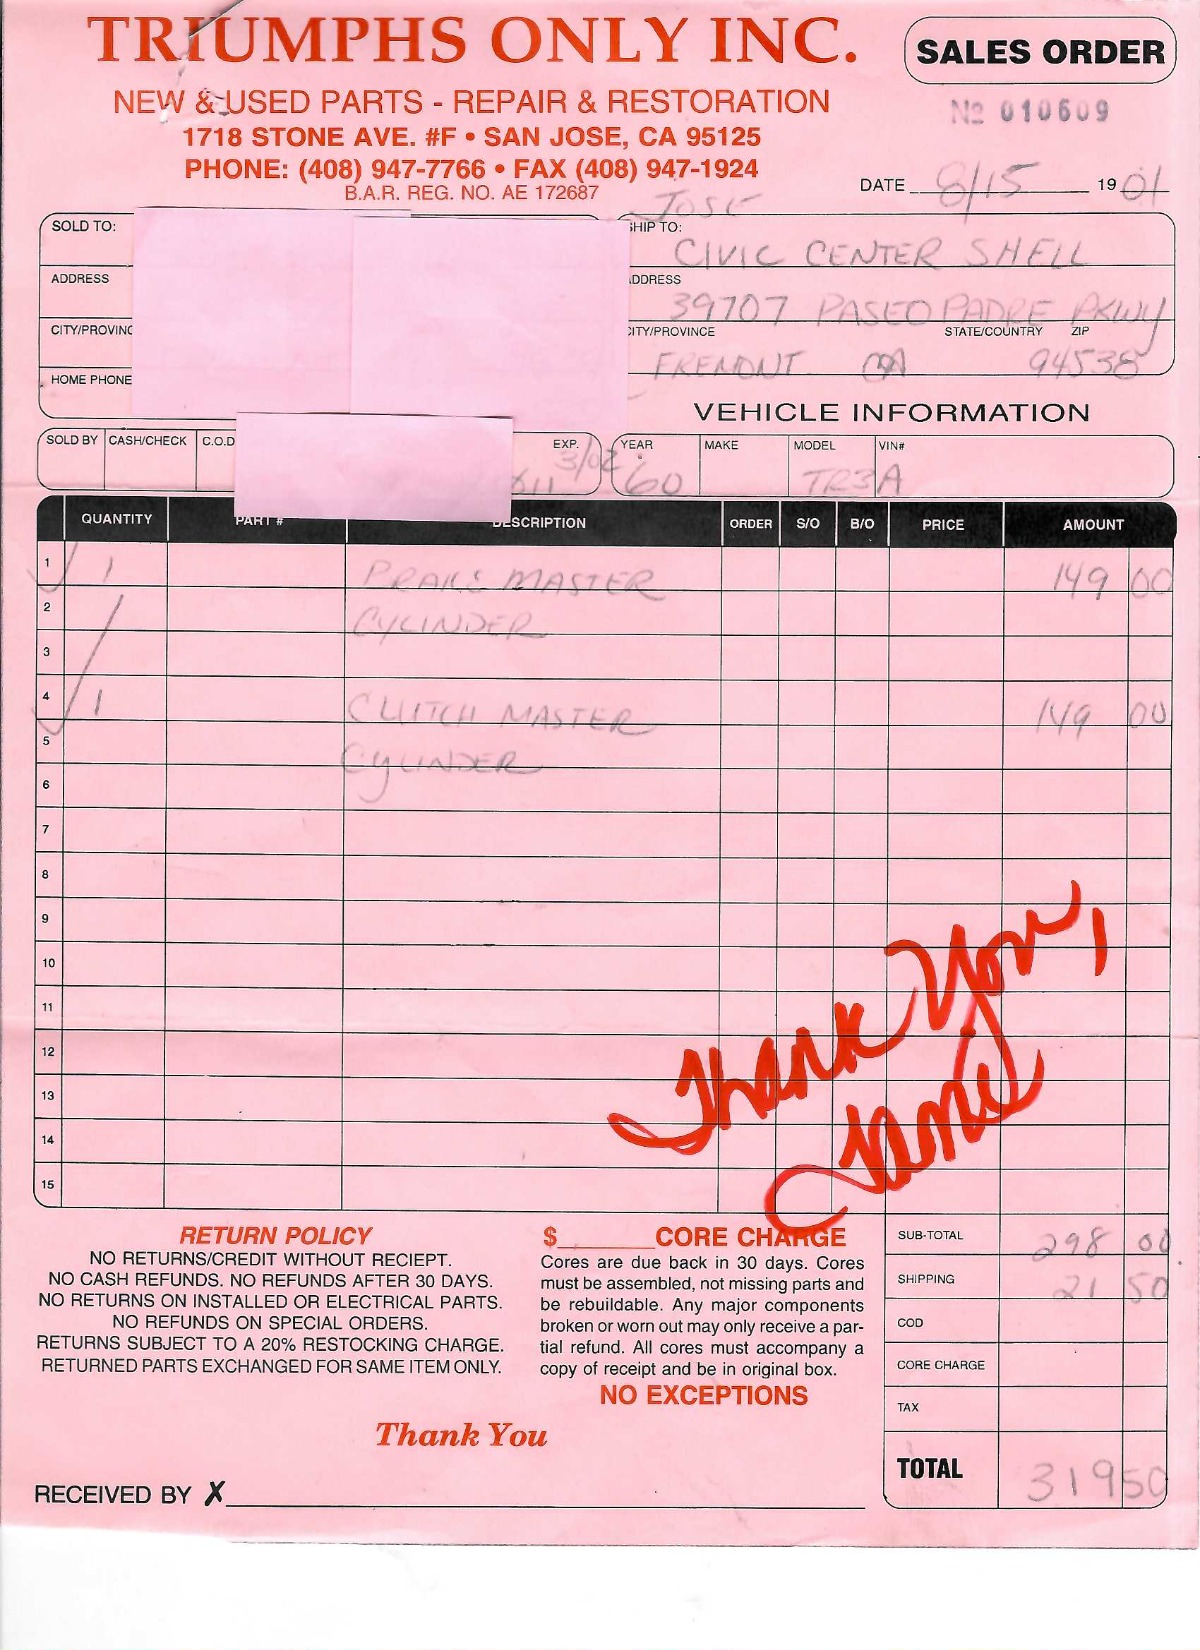 TRIUMPHS ONLY INC.
SALES ORDER
NEW & USED PARTS - REPAIR & RESTORATION
Nº 010609
1718 STONE AVE. #F • SAN JOSE, CA 95125
PHONE: (408) 947-7766 • FAX (408) 947-1924
B.A.R. REG. NO. AE 172687
DATE 8/15 19 01
JOSE
SOLD TO:
ADDRESS
CITY/PROVINC
HOME PHONE
SHIP TO:
CIVIC CENTER SHELL
ADDRESS
39707 PASEO PADRE PKWY
CITY/PROVINCE STATE/COUNTRY ZIP
FREMONT CA 94538
VEHICLE INFORMATION
SOLD BY CASH/CHECK C.O.D EXP. 3/02
YEAR MAKE MODEL VIN#
60 TR3A
QUANTITY PART # DESCRIPTION ORDER S/O B/O PRICE AMOUNT
1 1 BRAKE MASTER 149 00
2 CYLINDER
3
4 1 CLUTCH MASTER 149 00
5 CYLINDER
6
7
8
9
10
11
12
13
14
15
Thank You,
Janie
RETURN POLICY
NO RETURNS/CREDIT WITHOUT RECIEPT.
NO CASH REFUNDS. NO REFUNDS AFTER 30 DAYS.
NO RETURNS ON INSTALLED OR ELECTRICAL PARTS.
NO REFUNDS ON SPECIAL ORDERS.
RETURNS SUBJECT TO A 20% RESTOCKING CHARGE.
RETURNED PARTS EXCHANGED FOR SAME ITEM ONLY.
$______ CORE CHARGE
Cores are due back in 30 days. Cores
must be assembled, not missing parts and
be rebuildable. Any major components
broken or worn out may only receive a par-
tial refund. All cores must accompany a
copy of receipt and be in original box.
NO EXCEPTIONS
SUB-TOTAL 298 00
SHIPPING 21 50
COD
CORE CHARGE
TAX
TOTAL 319 50
Thank You
RECEIVED BY X